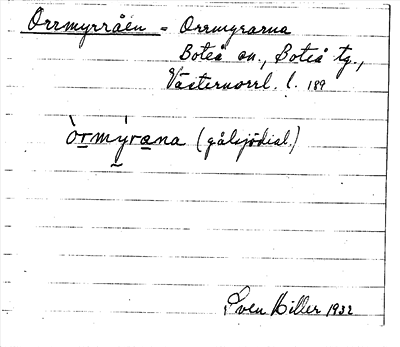 Orrmyrråen = Orrmyrarna
Boteå sn., Boteå tg.,
Västernorrl. l. 189
òrmýrana (gålsjödial.)
Sven Hiller 1932